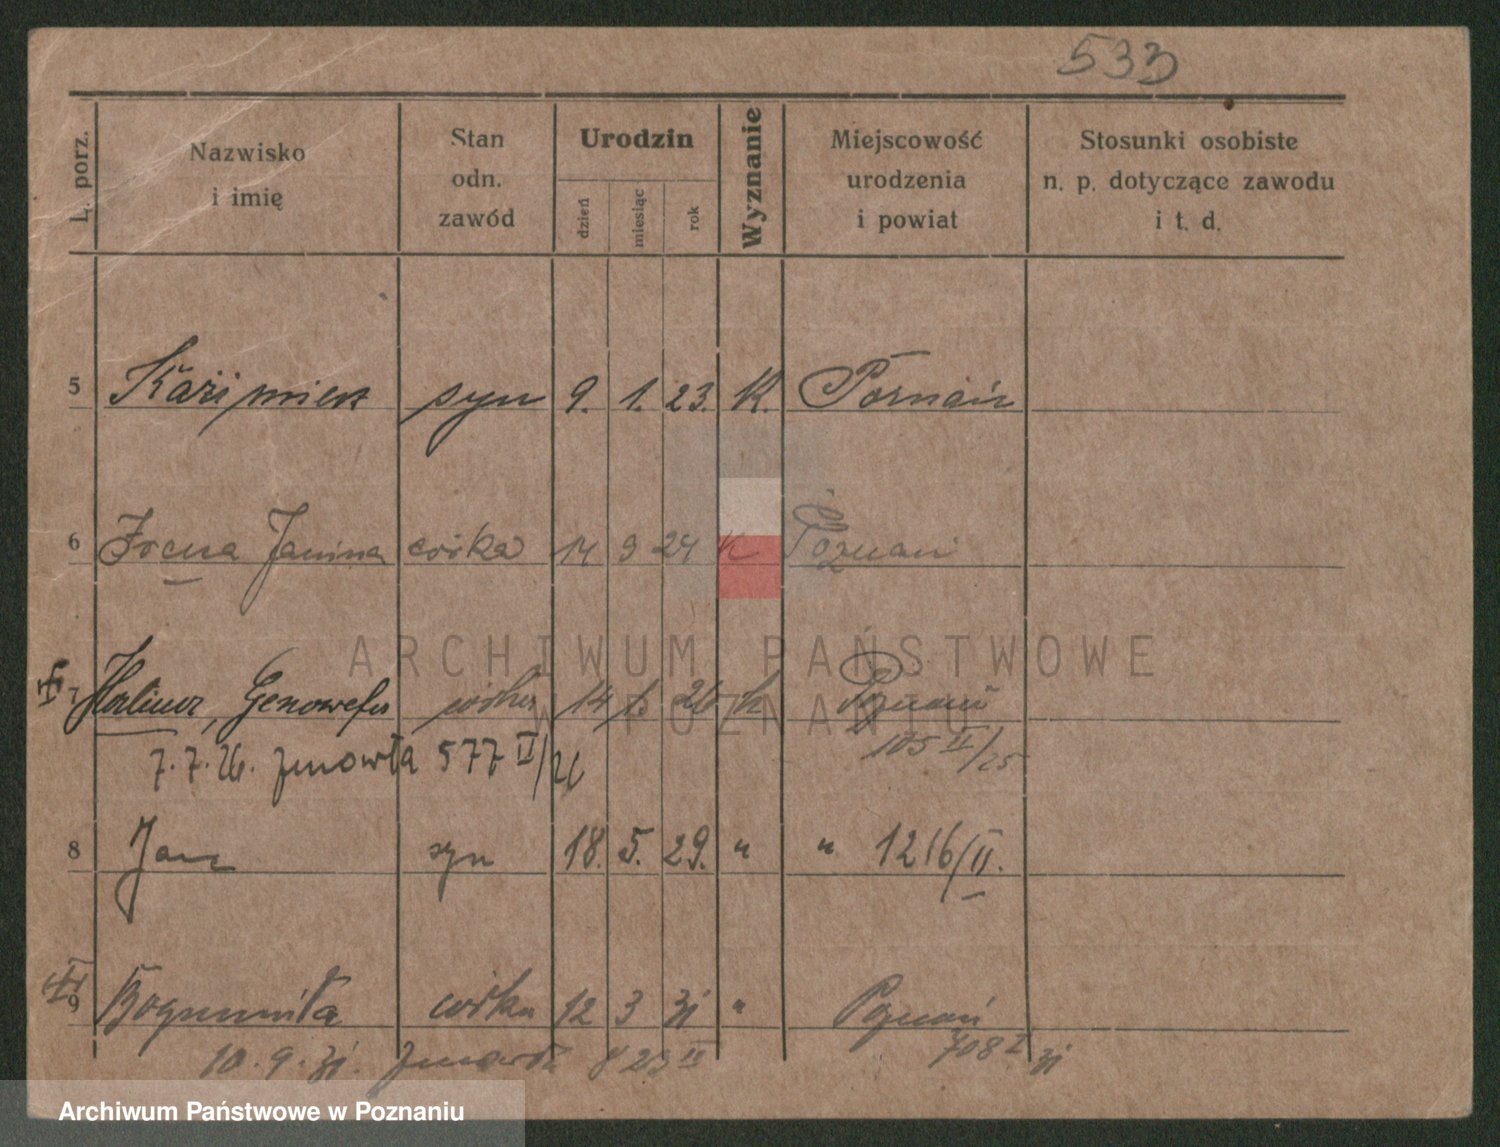 533
L. porz.
Nazwisko
i imię
Stan
odn.
zawód
Urodzin
dzień
miesiąc
rok
Wyznanie
Miejscowość
urodzenia
i powiat
Stosunki osobiste
n. p. dotyczące zawodu
i t. d.
5 Kazimierz syn 9. 1. 23. K. Poznań
6 Irena Janina córka 14 9 24 K Poznań
ARCHIWUM PAŃSTWOWE
W POZNANIU
7 Halina, Genowefa córka 14 26 k Poznań
7.7.26. zmarła 577 II/26 105 II/25
8 Jan syn 18. 5. 29. " " 1216/II.
9 Bogumiła córka 12 3 31 " Poznań
10.9.31. zmarła 823 708 I 31
Archiwum Państwowe w Poznaniu